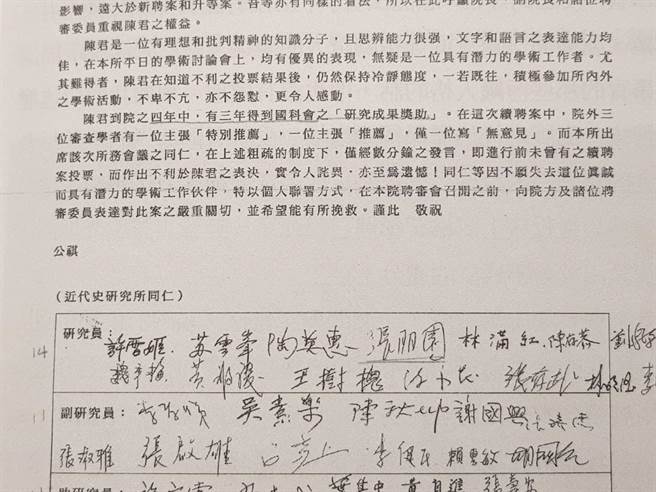 影響，遠大於新聘案和升等案。吾等亦有同樣的看法，所以在此呼籲院長、副院長和諸位聘
審委員重視陳君之權益。
陳君是一位有理想和批判精神的知識分子，且思辨能力很強，文字和語言之表達能力均
佳，在本所平日的學術討論會上，均有優異的表現，無疑是一位具有潛力的學術工作者。尤
其難得者，陳君在知道不利之投票結果後，仍然保持冷靜態度，一若既往，積極參加所內外
之學術活動，不卑不亢，亦不怨懟，更令人感動。
陳君到院之四年中，有三年得到國科會之「研究成果獎助」。在這次續聘案中，院外三
位審查學者有一位主張「特別推薦」，一位主張「推薦」，僅一位寫「無意見」。而本所出
席該次所務會議之同仁，在上述粗疏的制度下，僅經數分鐘之發言，即進行前未曾有之續聘
案投票，而作出不利於陳君之表決，實令人詫異、亦至為遺憾！同仁等因不願失去這位真誠
而具有潛力的學術工作伙伴，特以個人聯署方式，在本院聘審會召開之前，向院方及諸位聘
審委員表達對此案之嚴重關切，並希望能有所挽救。謹此　敬祝
公祺
(近代史研究所同仁)
14 研究員： 許雪姬 蘇雲峯 陶英惠 張朋園 林滿紅 陳存恭
魏秀梅 黃福慶 王樹槐 張存武
11 副研究員： 吳素樂 陳秋坤 謝國興
張淑雅 張啟雄 呂芳上 李健民 賴惠敏 胡國台
助研究員：